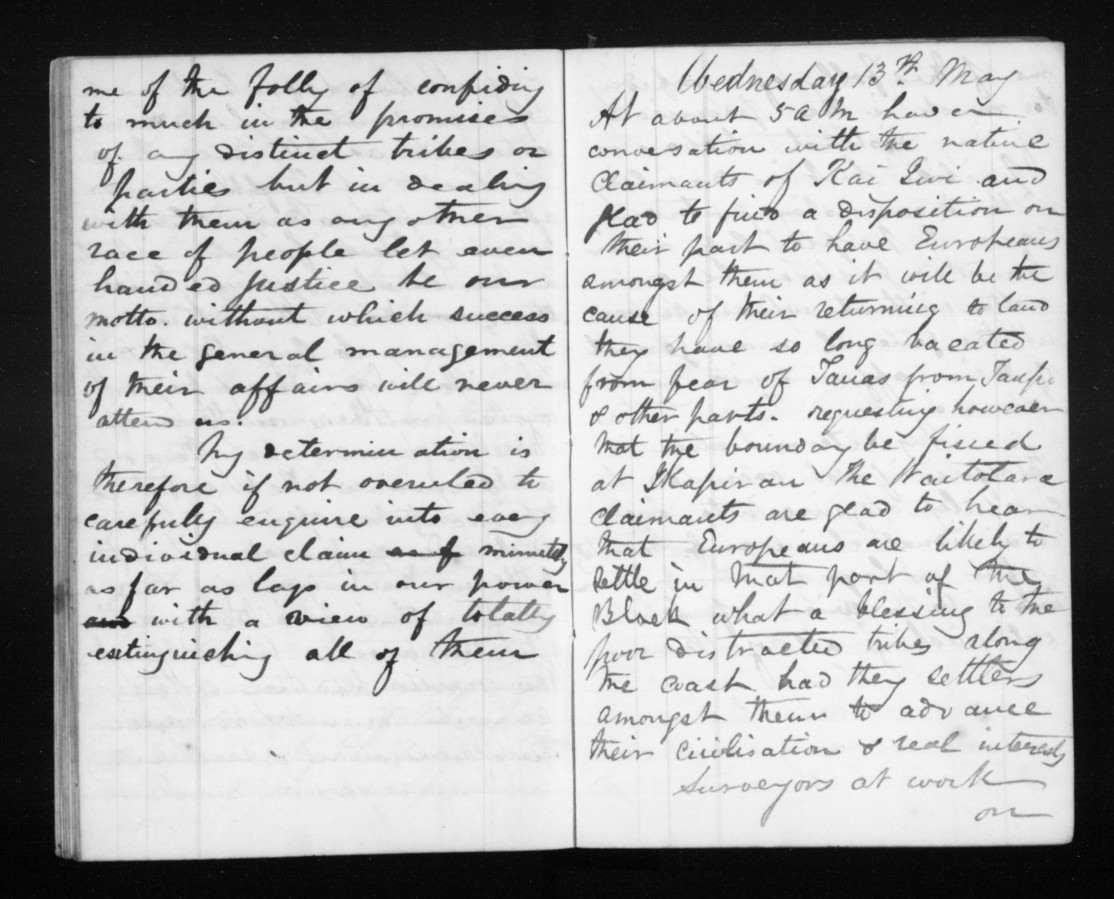 me of the folly of confiding
to much in the promises
of any distinct tribes or
parties but in dealing
with them as any other
race of people let even
handed justice be our
motto. without which success
in the general management
of their affairs will never
atten us.
My determination is
therefore if not overuled to
carefully enquire into every
individual claim as minutely
as far as lays in our power
with a view of totally
extinguishing all of them
Wednesday 13th May
At about 5 AM have a
conversation with the native
Claimants of Kai Iwi and
glad to find a disposition on
their part to have Europeans
amongst them as it will be the
cause of their returning to land
they have so long vacated
from fear of Tauas from Taupo
& other parts. requesting however
that the boundary be fixed
at the Waitotara
claimants are glad to hear
that Europeans are likely to
settle in that part of the
Block what a blessing to the
poor distracted tribes along
the coast had they settlers
amongst them to advance
their civilisation & real interests
Surveyors at work
on